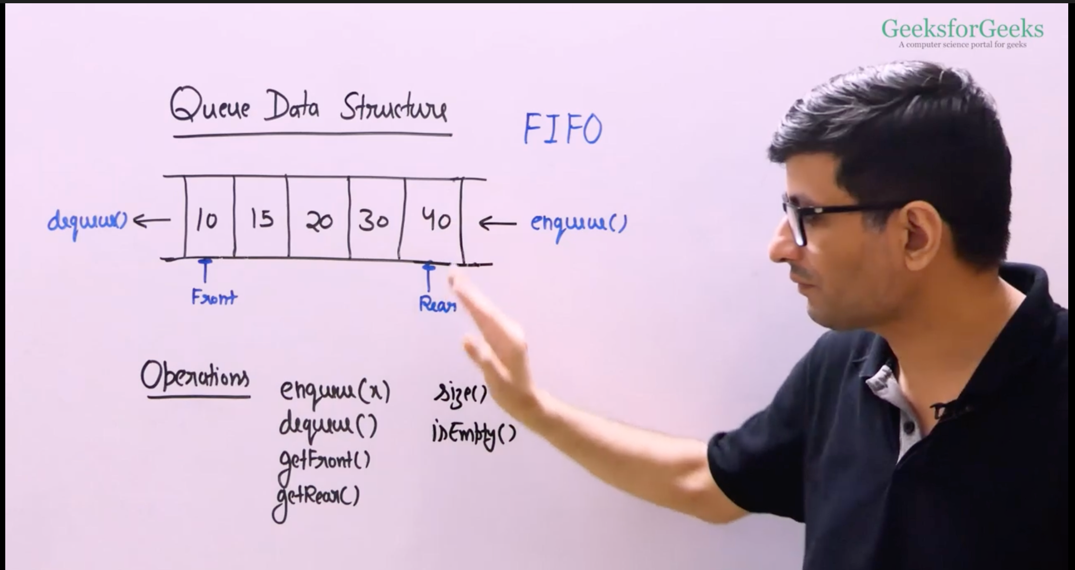 GeeksforGeeks
A computer science portal for geeks
Queue Data Structure
FIFO
dequeue() ← 10 15 20 30 40 ← enqueue()
Front Rear
Operations
enqueue(x) size()
dequeue() isEmpty()
getFront()
getRear()